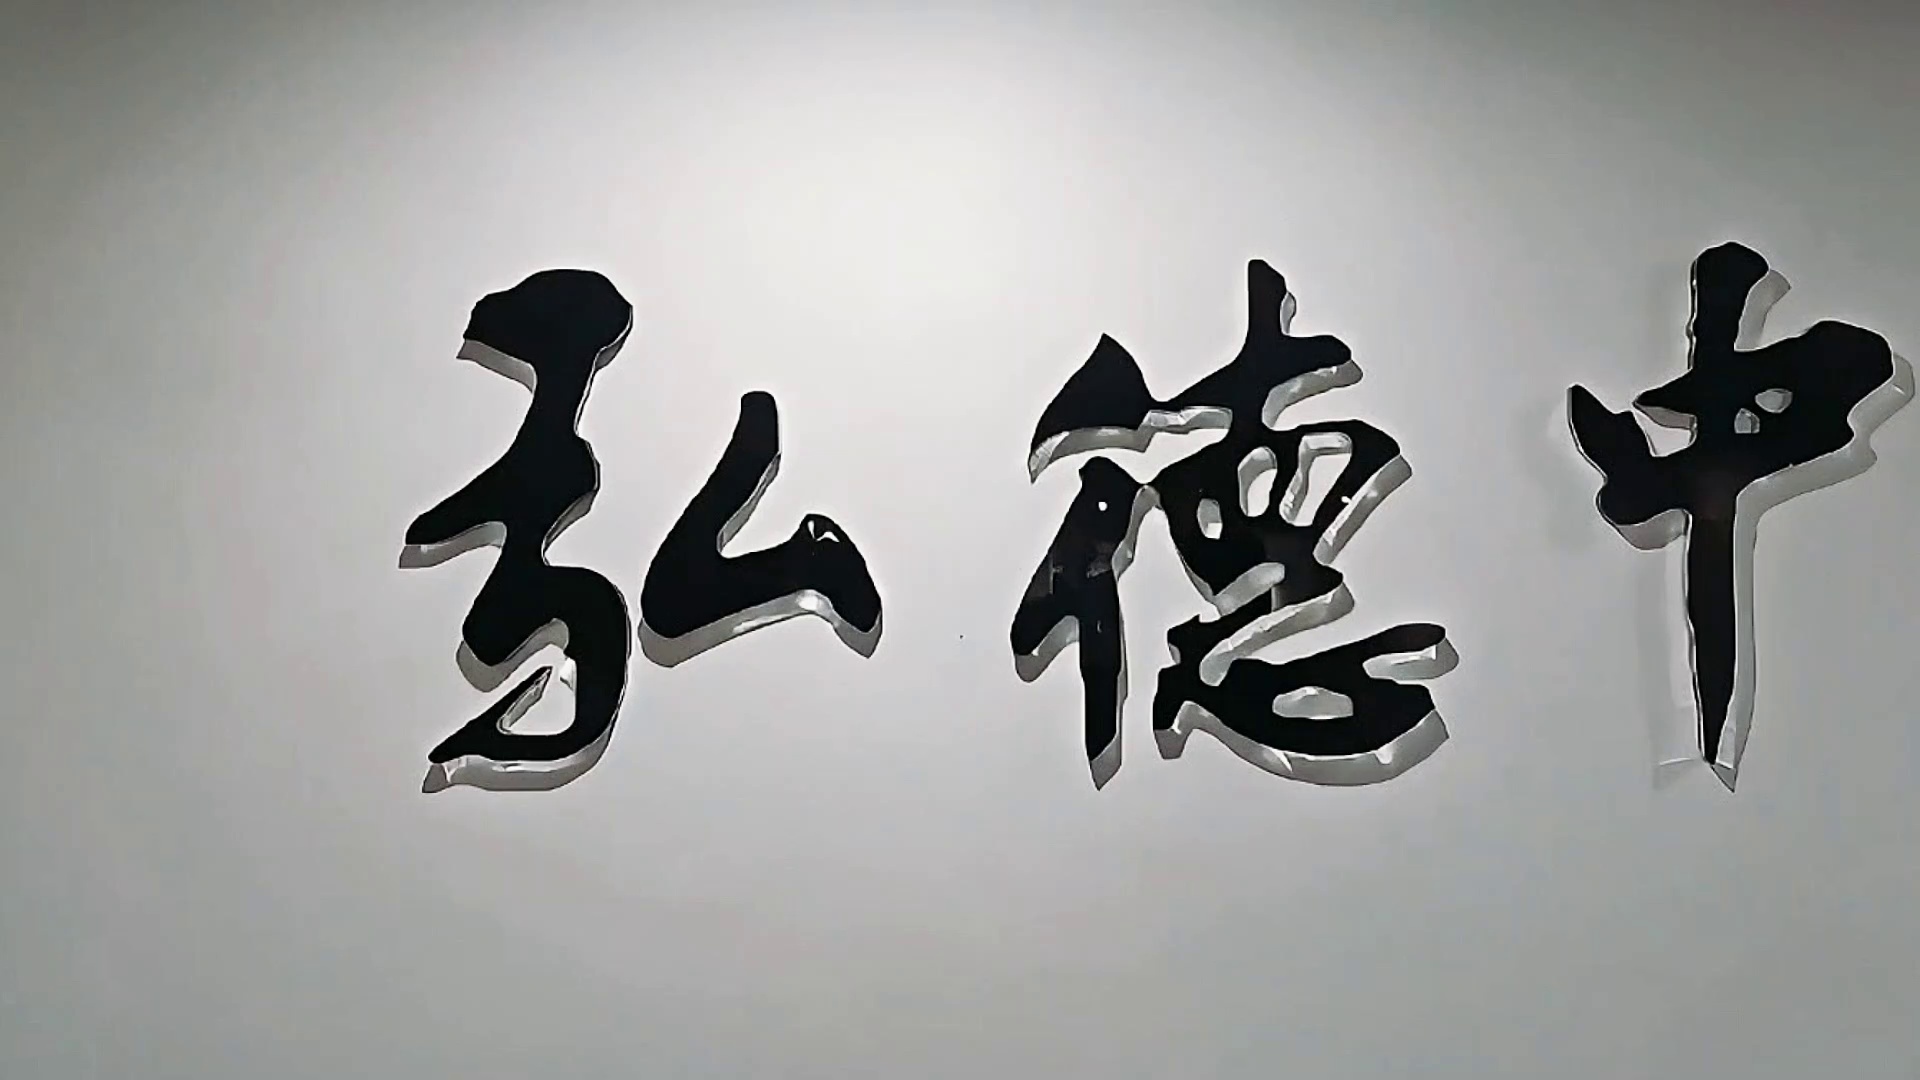 弘德中